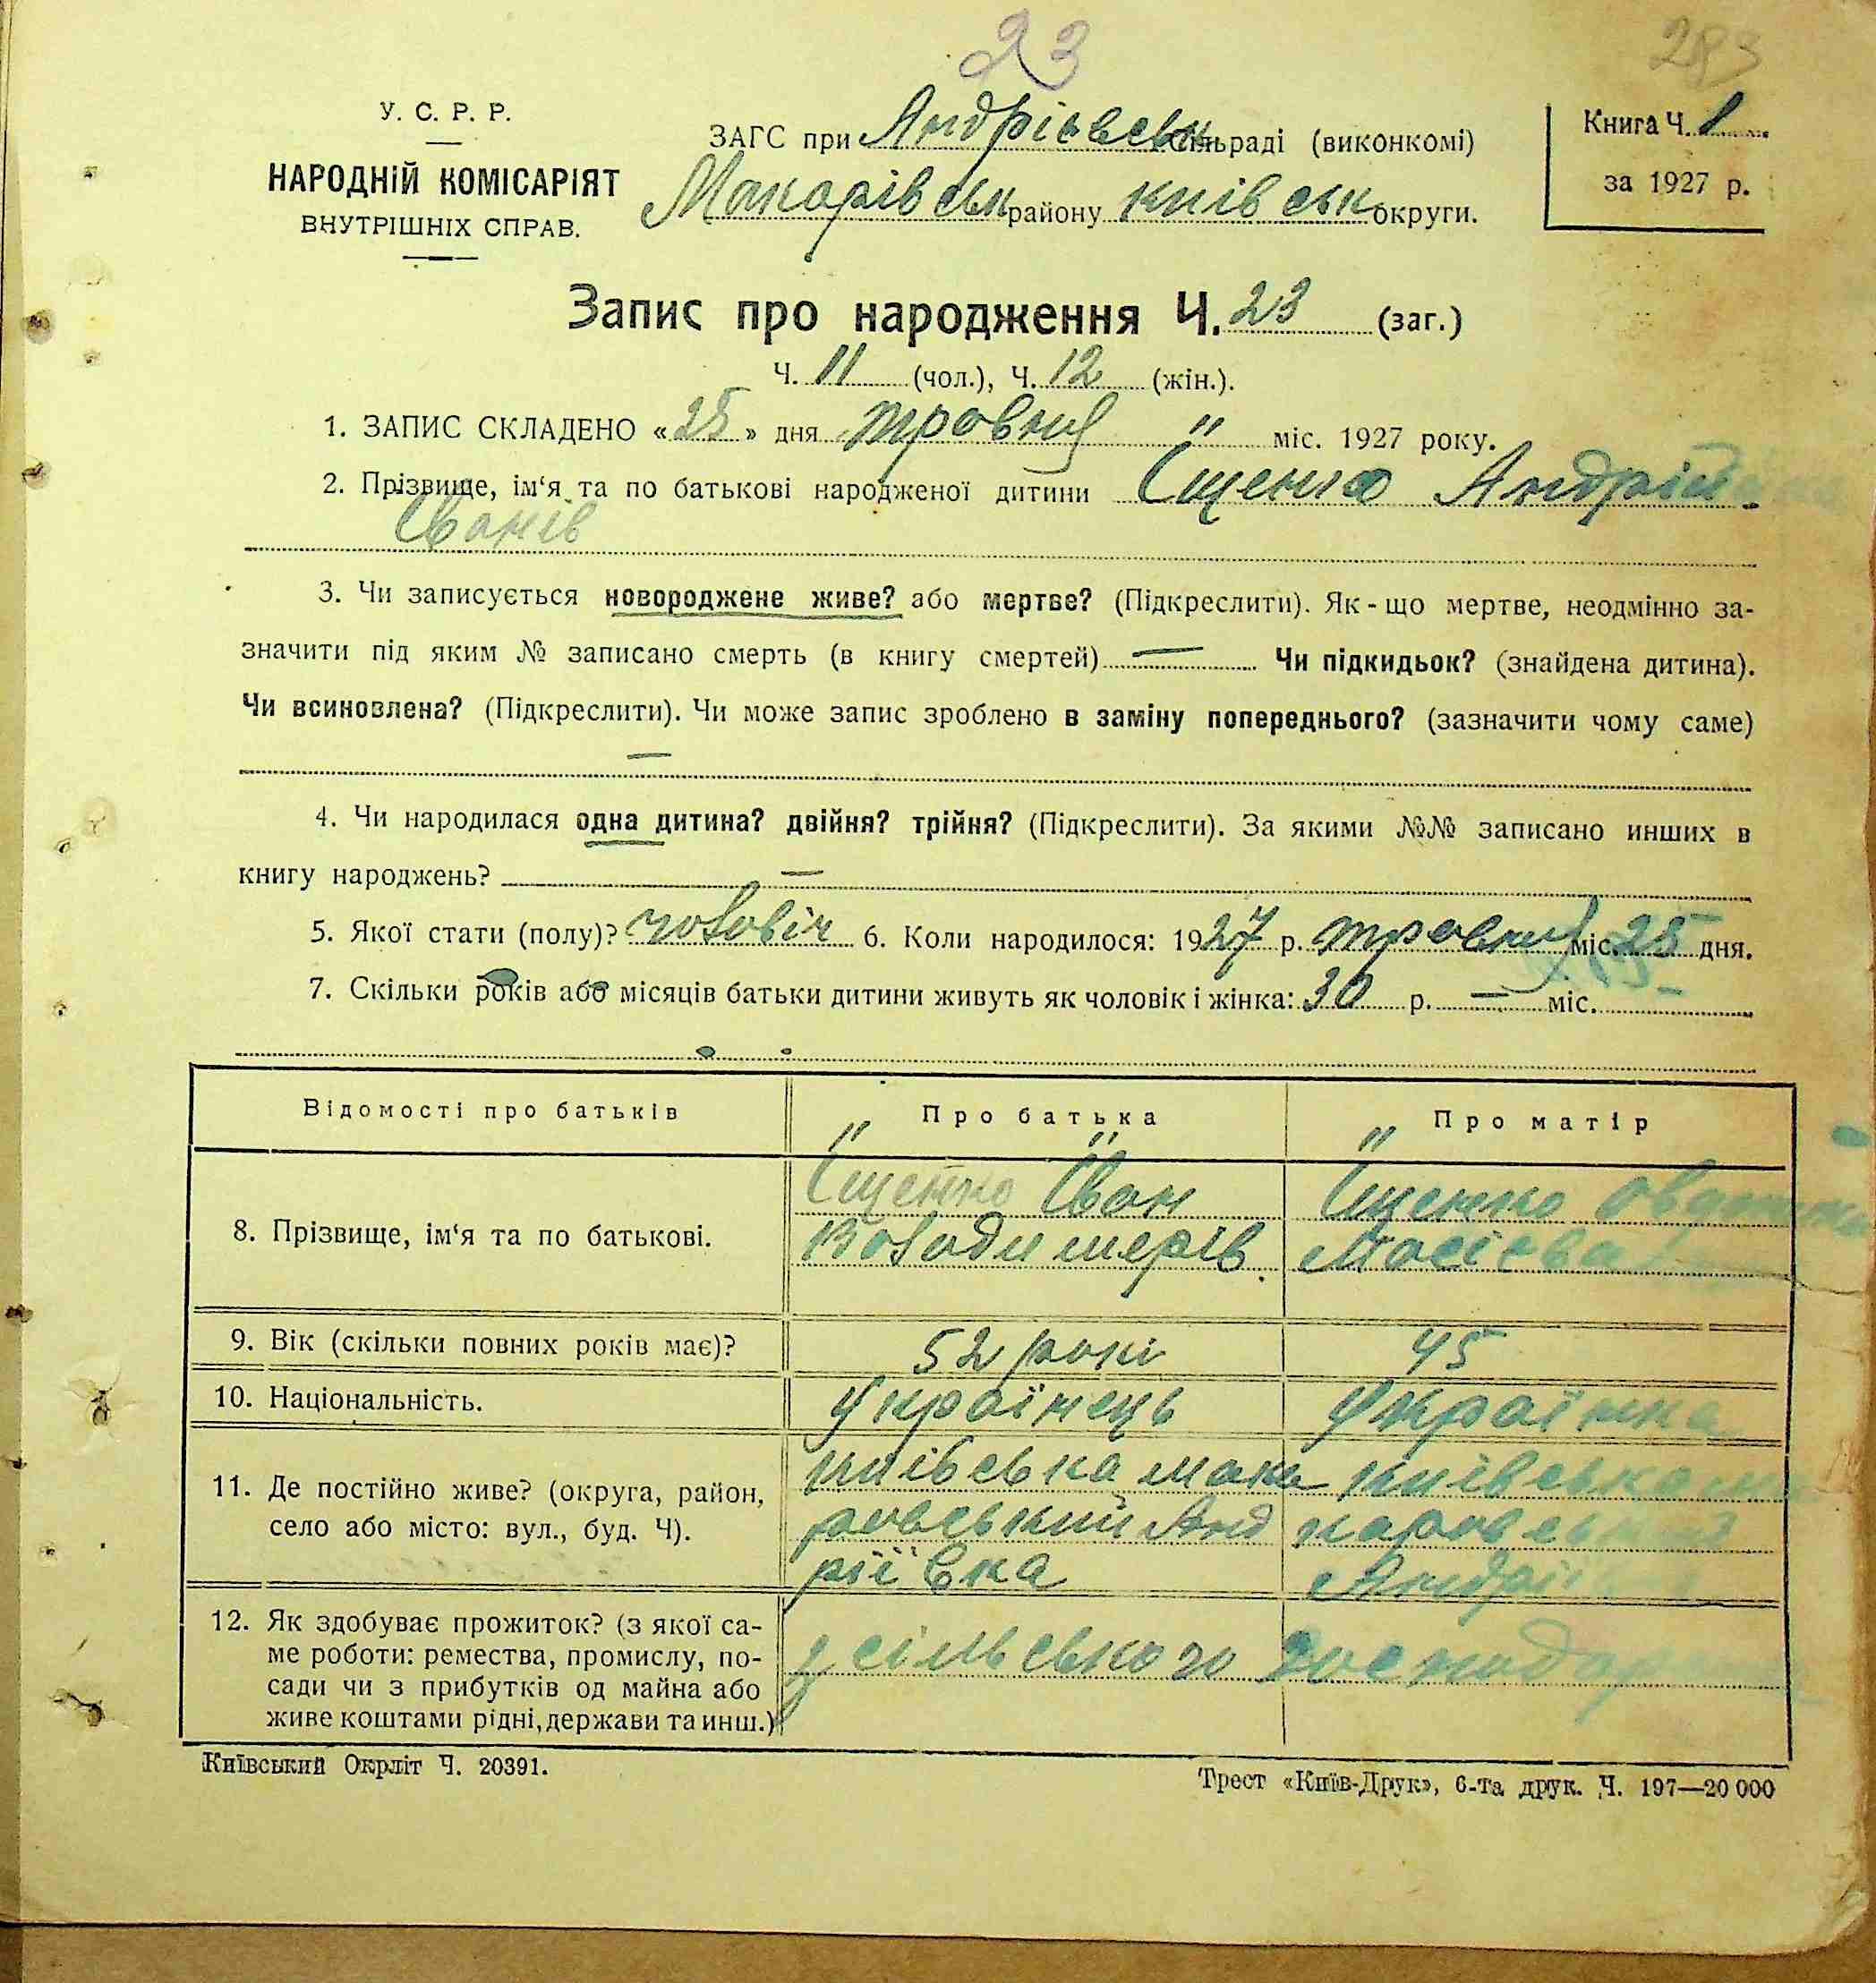 23
283
У. С. Р. Р.
НАРОДНІЙ КОМІСАРІЯТ
ВНУТРІШНІХ СПРАВ.
ЗАГС при Андрієвськ сільраді (виконкомі)
Макарівськ району київськ округи.
Книга Ч. 1
за 1927 р.
Запис про народження Ч. 23 (заг.)
Ч. 11 (чол.), Ч. 12 (жін.).
1. ЗАПИС СКЛАДЕНО «25» дня травня міс. 1927 року.
2. Прізвище, ім'я та по батькові народженої дитини Іщенко Андрій
Іванів
3. Чи записується новороджене живе? або мертве? (Підкреслити). Як-що мертве, неодмінно за-
значити під яким № записано смерть (в книгу смертей) — Чи підкидьок? (знайдена дитина).
Чи всиновлена? (Підкреслити). Чи може запис зроблено в заміну попереднього? (зазначити чому саме)
—
4. Чи народилася одна дитина? двійня? трійня? (Підкреслити). За якими №№ записано инших в
книгу народжень? —
5. Якої стати (полу)? чоловіч 6. Коли народилося: 1927 р. травня міс. 25 дня.
7. Скільки років або місяців батьки дитини живуть як чоловік і жінка: 30 р. — міс.
Відомості про батьків Про батька Про матір
8. Прізвище, ім'я та по батькові.
Іщенко Іван
Володимерів
Іщенко
Мосієва
9. Вік (скільки повних років має)? 52 рокі 45
10. Національність. Українець Українка
11. Де постійно живе? (округа, район,
село або місто: вул., буд. Ч).
київська мака
ровський Анд
ріївка
київська ма
каровський
Андрії
12. Як здобуває прожиток? (з якої са-
ме роботи: ремества, промислу, по-
сади чи з прибутків од майна або
живе коштами рідні, держави та инш.)
з сільського господар
Київський Окрліт Ч. 20391.
Трест «Київ-Друк», 6-та друк. Ч. 197—20 000